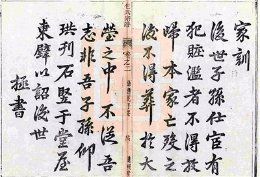 家訓
後世子孫仕宦有
犯賍濫者不得放
歸本家亡歿之
後不得葬於大
塋之中不從吾
志非吾子孫仰
珙刊石竪于堂屋
東壁以詔後世
拯書